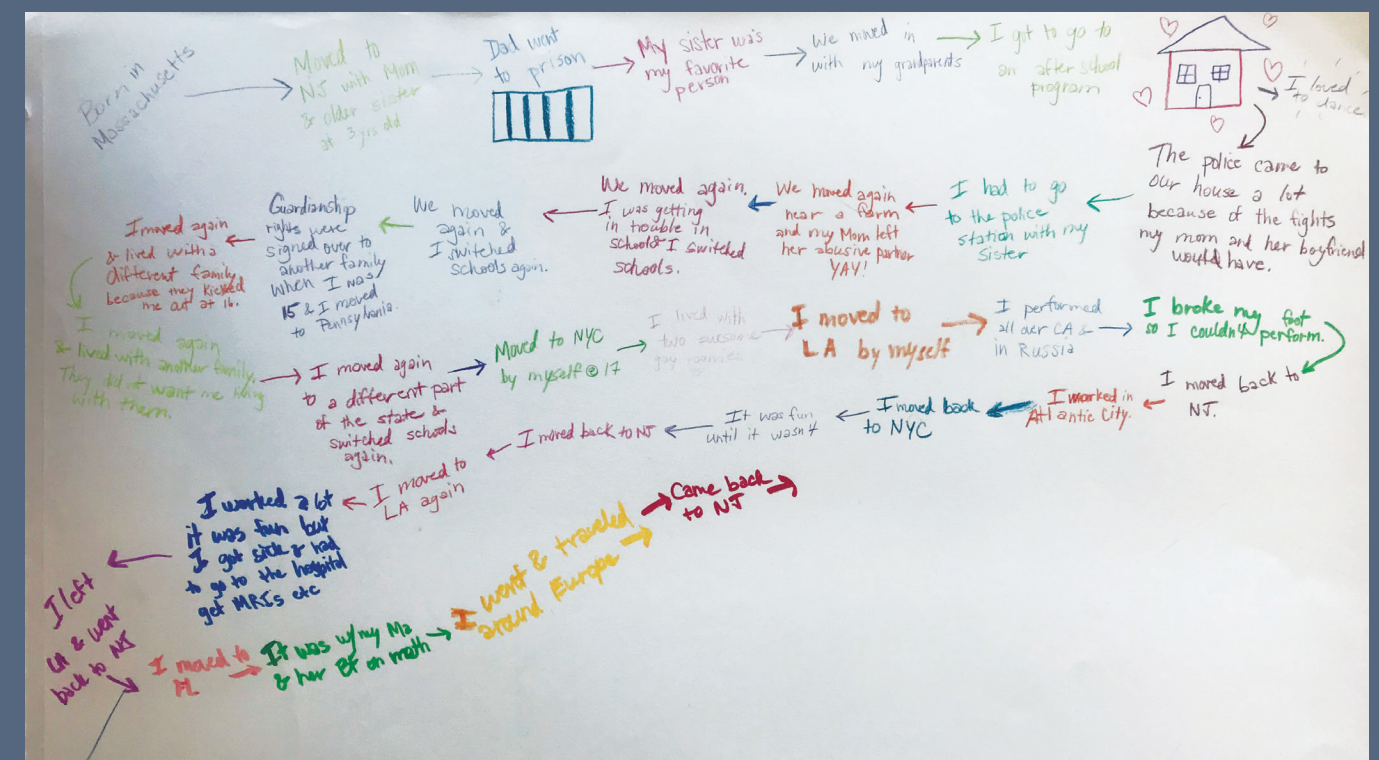 Born in
Massachusetts
Moved to
NJ with Mom
& older sister
at 3 yrs old
Dad went
to prison
My sister was
my favorite
person
We moved in
with my grandparents
I got to go to
an after school
program
I loved
to dance
The police came to
our house a lot
because of the fights
my mom and her boyfriend
would have.
I had to go
to the police
station with my
Sister
We moved again
near a farm
and my Mom left
her abusive partner
YAY!
We moved again.
I was getting
in trouble in
school & I switched
schools.
We moved
again &
I switched
schools again.
Guardianship
rights were
signed over to
another family
when I was
15 & I moved
to Pennsylvania.
I moved again
& lived with a
different family
because they kicked
me out at 16.
I moved again
& lived with another family.
They didn't want me living
with them.
I moved again
to a different part
of the state &
switched schools
again.
Moved to NYC
by myself @ 17
I lived with
two awesome
gay roomies
I moved to
LA by myself
I performed
all over CA &
in Russia
I broke my foot
so I couldn't perform.
I moved back to
NJ.
I worked in
Atlantic City.
I moved back
to NYC
It was fun
until it wasn't
I moved back to NJ
I moved to
LA again
I worked a lot
it was fun but
I got sick & had
to go to the hospital
get MRIs etc
I left
LA & went
back to NJ
I moved to
FL
It was w/my Ma
& her BF on meth
I went & traveled
around Europe
Came back
to NJ